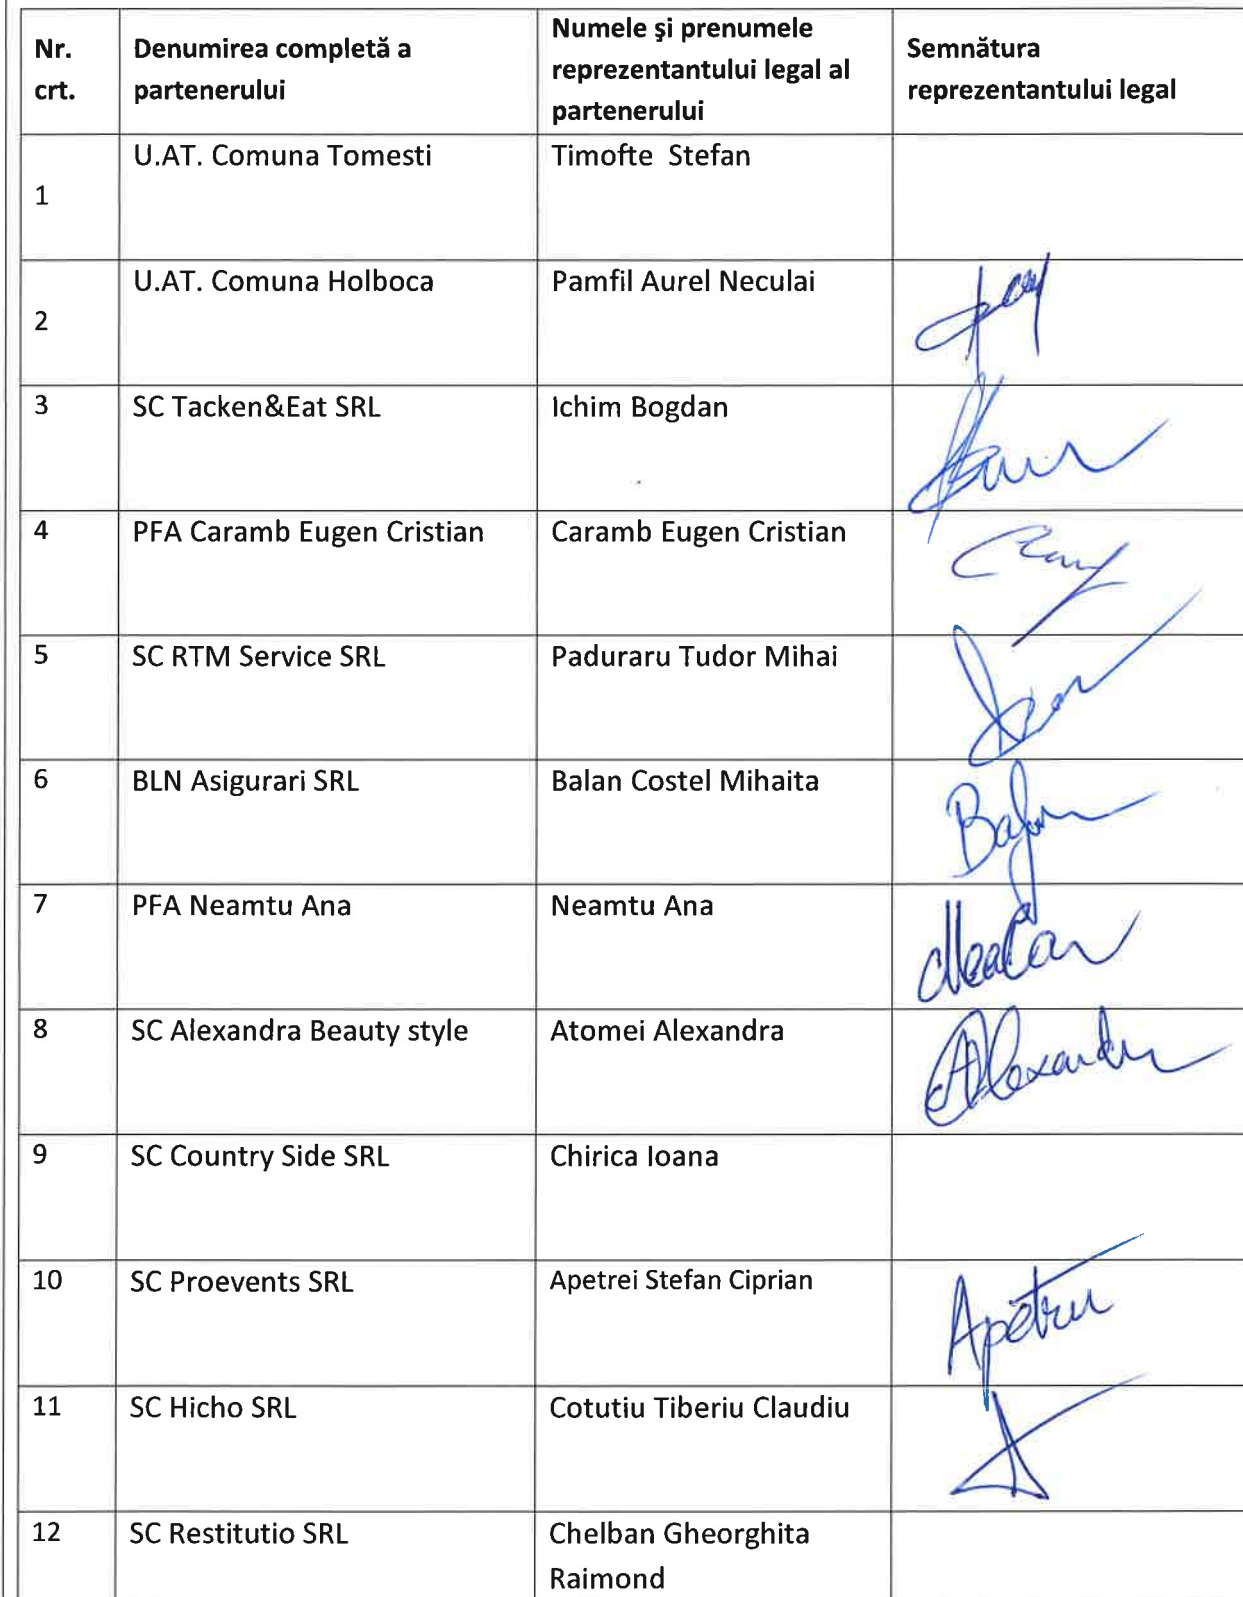 Nr. crt.
Denumirea completă a partenerului
Numele și prenumele reprezentantului legal al partenerului
Semnătura reprezentantului legal
1 U.AT. Comuna Tomesti Timofte Stefan
2 U.AT. Comuna Holboca Pamfil Aurel Neculai
3 SC Tacken&Eat SRL Ichim Bogdan
4 PFA Caramb Eugen Cristian Caramb Eugen Cristian
5 SC RTM Service SRL Paduraru Tudor Mihai
6 BLN Asigurari SRL Balan Costel Mihaita
7 PFA Neamtu Ana Neamtu Ana
8 SC Alexandra Beauty style Atomei Alexandra
9 SC Country Side SRL Chirica Ioana
10 SC Proevents SRL Apetrei Stefan Ciprian
11 SC Hicho SRL Cotutiu Tiberiu Claudiu
12 SC Restitutio SRL Chelban Gheorghita
Raimond